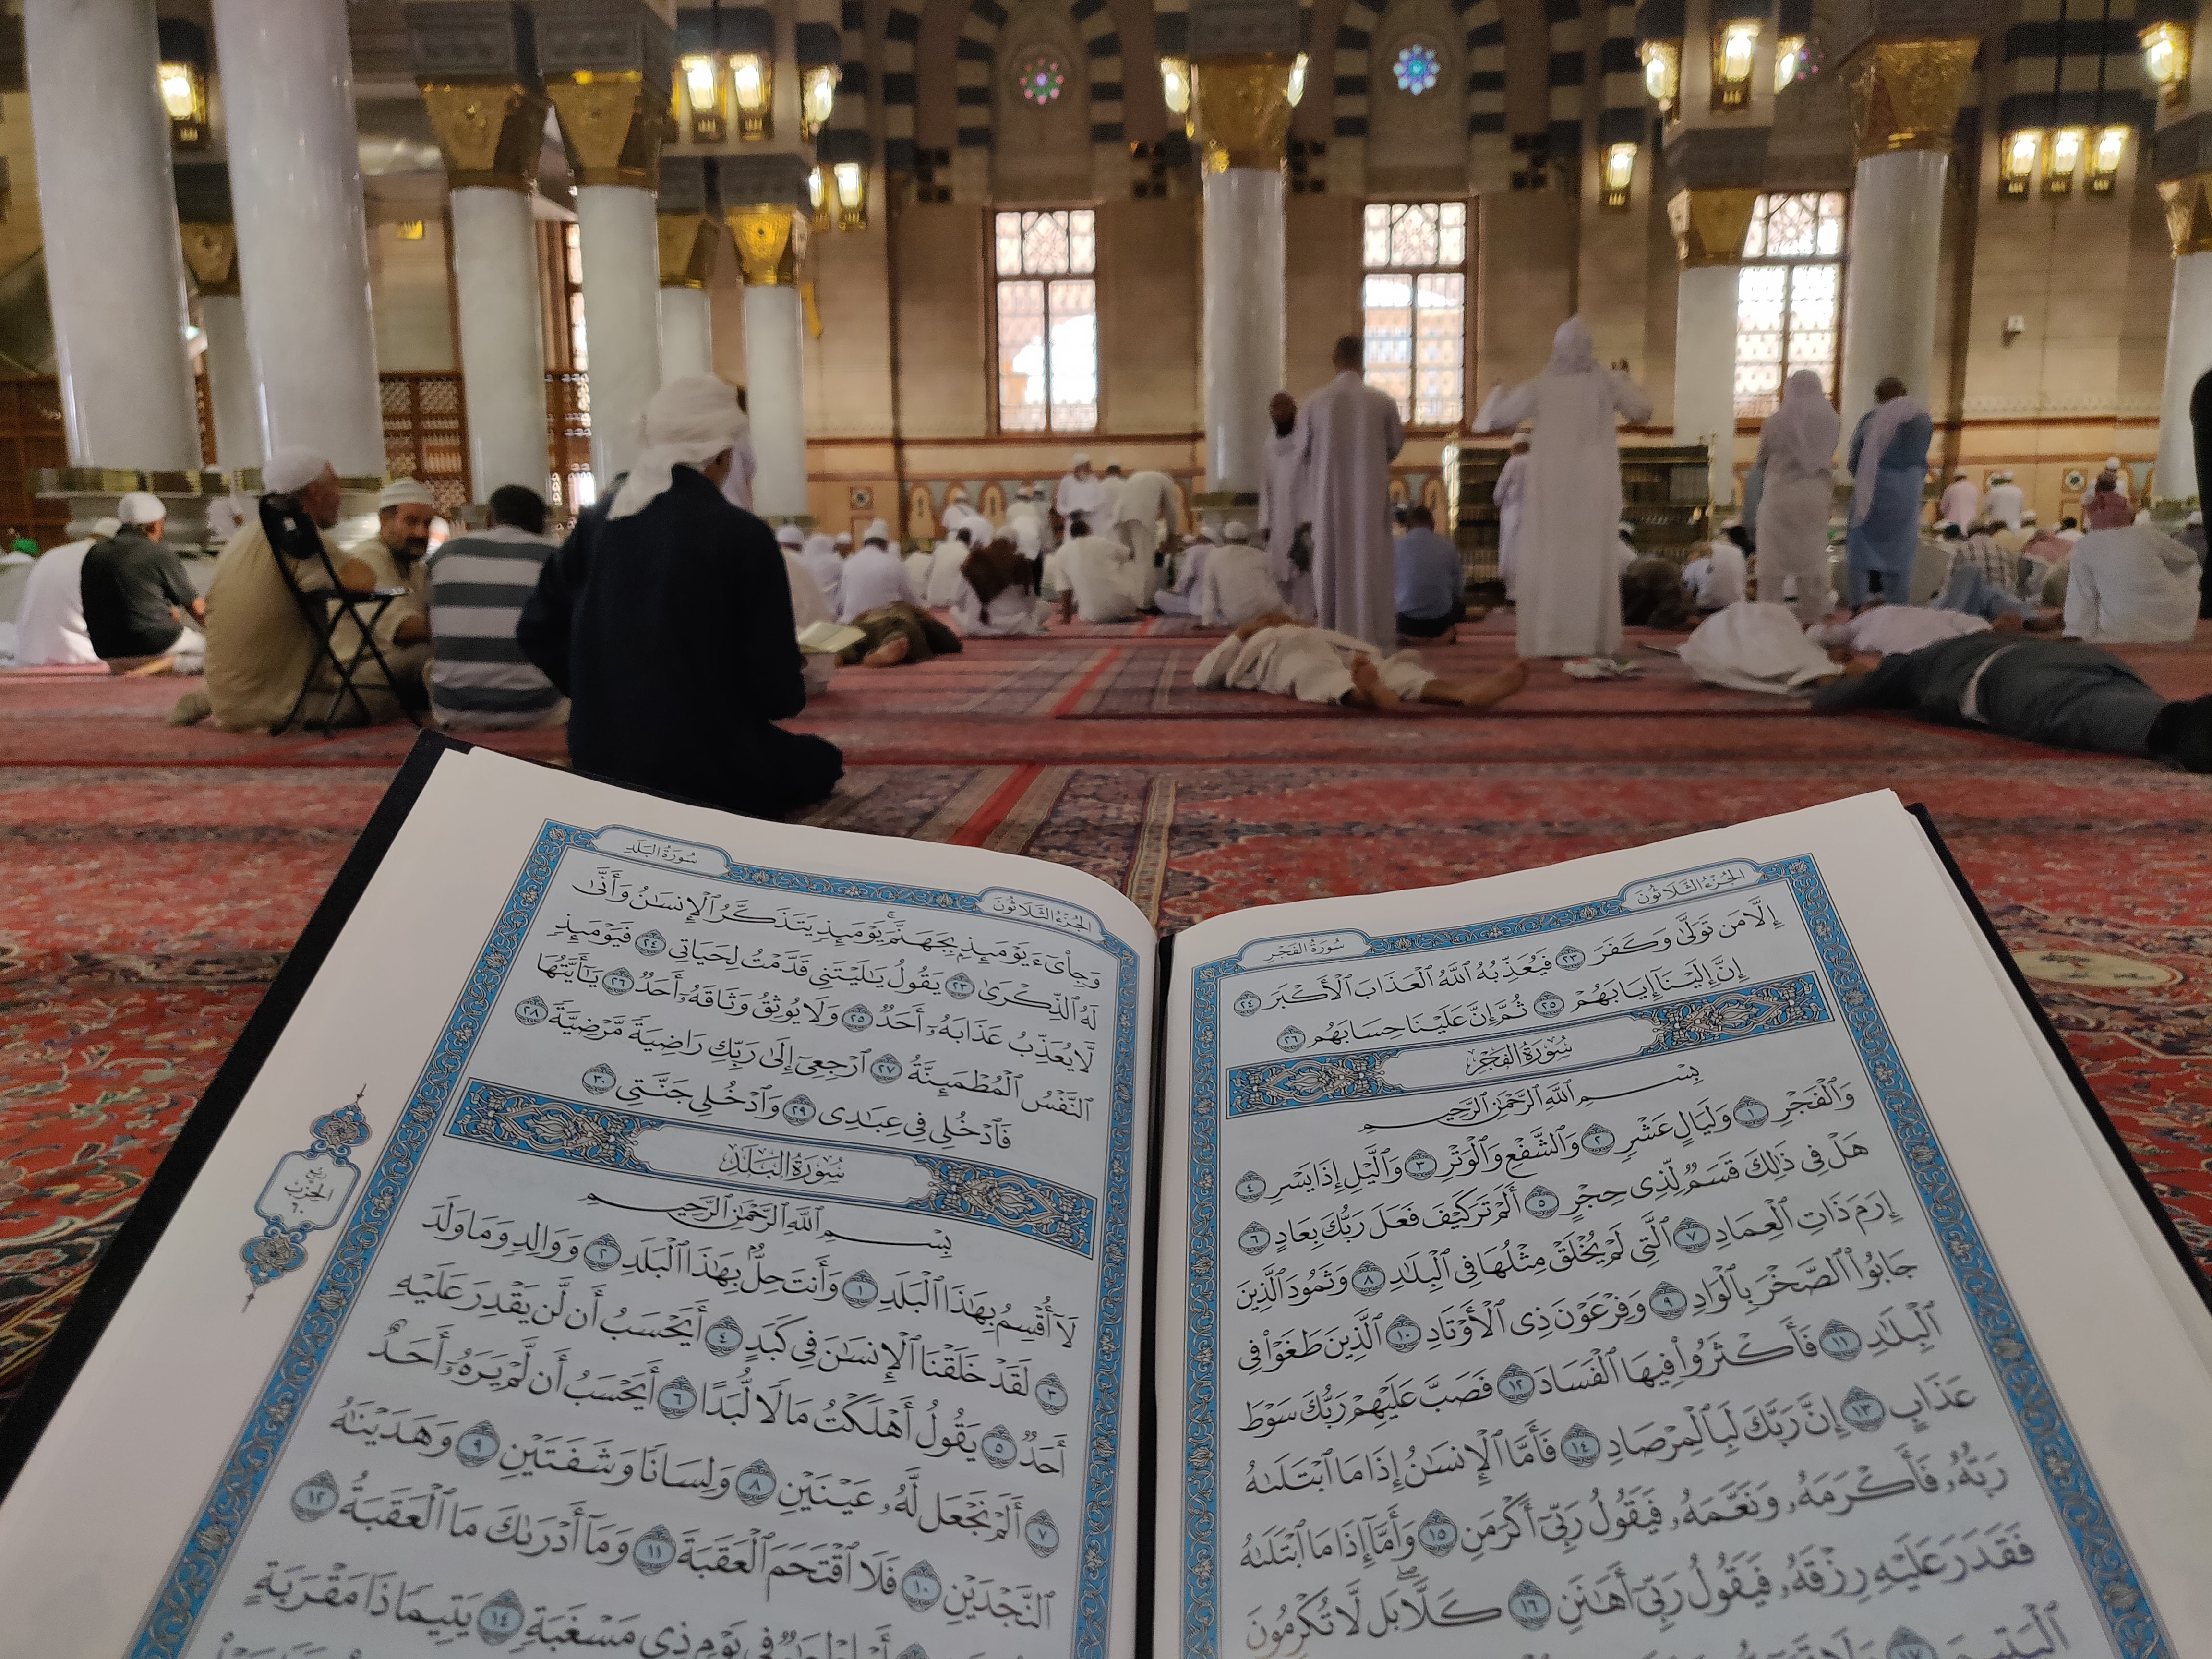 الجُزْءُ الثَّلَاثُونَ
سُورَةُ الفَجْرِ
إِلَّا مَن تَوَلَّىٰ وَكَفَرَ ٢٣ فَيُعَذِّبُهُ ٱللَّهُ ٱلْعَذَابَ ٱلْأَكْبَرَ ٢٤
إِنَّ إِلَيْنَآ إِيَابَهُمْ ٢٥ ثُمَّ إِنَّ عَلَيْنَا حِسَابَهُم ٢٦
سُورَةُ الفَجْرِ
بِسْمِ ٱللَّهِ ٱلرَّحْمَٰنِ ٱلرَّحِيمِ
وَٱلْفَجْرِ ١ وَلَيَالٍ عَشْرٍ ٢ وَٱلشَّفْعِ وَٱلْوَتْرِ ٣ وَٱلَّيْلِ إِذَا يَسْرِ ٤
هَلْ فِى ذَٰلِكَ قَسَمٌ لِّذِى حِجْرٍ ٥ أَلَمْ تَرَ كَيْفَ فَعَلَ رَبُّكَ بِعَادٍ ٦
إِرَمَ ذَاتِ ٱلْعِمَادِ ٧ ٱلَّتِى لَمْ يُخْلَقْ مِثْلُهَا فِى ٱلْبِلَٰدِ ٨ وَثَمُودَ ٱلَّذِينَ
جَابُوا۟ ٱلصَّخْرَ بِٱلْوَادِ ٩ وَفِرْعَوْنَ ذِى ٱلْأَوْتَادِ ١٠ ٱلَّذِينَ طَغَوْا۟ فِى
ٱلْبِلَٰدِ ١١ فَأَكْثَرُوا۟ فِيهَا ٱلْفَسَادَ ١٢ فَصَبَّ عَلَيْهِمْ رَبُّكَ سَوْطَ
عَذَابٍ ١٣ إِنَّ رَبَّكَ لَبِٱلْمِرْصَادِ ١٤ فَأَمَّا ٱلْإِنسَٰنُ إِذَا مَا ٱبْتَلَىٰهُ
رَبُّهُۥ فَأَكْرَمَهُۥ وَنَعَّمَهُۥ فَيَقُولُ رَبِّىٓ أَكْرَمَنِ ١٥ وَأَمَّآ إِذَا مَا ٱبْتَلَىٰهُ
فَقَدَرَ عَلَيْهِ رِزْقَهُۥ فَيَقُولُ رَبِّىٓ أَهَٰنَنِ ١٦ كَلَّا ۖ بَل لَّا تُكْرِمُونَ
ٱلْيَتِيمَ ١٧
الجُزْءُ الثَّلَاثُونَ
سُورَةُ البَلَدِ
وَجِا۟ىٓءَ يَوْمَئِذٍۭ بِجَهَنَّمَ ۚ يَوْمَئِذٍ يَتَذَكَّرُ ٱلْإِنسَٰنُ وَأَنَّىٰ
لَهُ ٱلذِّكْرَىٰ ٢٣ يَقُولُ يَٰلَيْتَنِى قَدَّمْتُ لِحَيَاتِى ٢٤ فَيَوْمَئِذٍ
لَّا يُعَذِّبُ عَذَابَهُۥٓ أَحَدٌ ٢٥ وَلَا يُوثِقُ وَثَاقَهُۥٓ أَحَدٌ ٢٦ يَٰٓأَيَّتُهَا
ٱلنَّفْسُ ٱلْمُطْمَئِنَّةُ ٢٧ ٱرْجِعِىٓ إِلَىٰ رَبِّكِ رَاضِيَةً مَّرْضِيَّةً ٢٨
فَٱدْخُلِى فِى عِبَٰدِى ٢٩ وَٱدْخُلِى جَنَّتِى ٣٠
سُورَةُ البَلَدِ
بِسْمِ ٱللَّهِ ٱلرَّحْمَٰنِ ٱلرَّحِيمِ
لَآ أُقْسِمُ بِهَٰذَا ٱلْبَلَدِ ١ وَأَنتَ حِلٌّۢ بِهَٰذَا ٱلْبَلَدِ ٢ وَوَالِدٍ وَمَا وَلَدَ
٣ لَقَدْ خَلَقْنَا ٱلْإِنسَٰنَ فِى كَبَدٍ ٤ أَيَحْسَبُ أَن لَّن يَقْدِرَ عَلَيْهِ
أَحَدٌ ٥ يَقُولُ أَهْلَكْتُ مَالًا لُّبَدًا ٦ أَيَحْسَبُ أَن لَّمْ يَرَهُۥٓ أَحَدٌ
٧ أَلَمْ نَجْعَل لَّهُۥ عَيْنَيْنِ ٨ وَلِسَانًا وَشَفَتَيْنِ ٩ وَهَدَيْنَٰهُ
ٱلنَّجْدَيْنِ ١٠ فَلَا ٱقْتَحَمَ ٱلْعَقَبَةَ ١١ وَمَآ أَدْرَىٰكَ مَا ٱلْعَقَبَةُ ١٢
فِى يَوْمٍ ذِى مَسْغَبَةٍ ١٤ يَتِيمًا ذَا مَقْرَبَةٍ
رُبْع
الحِزْب
٦٠